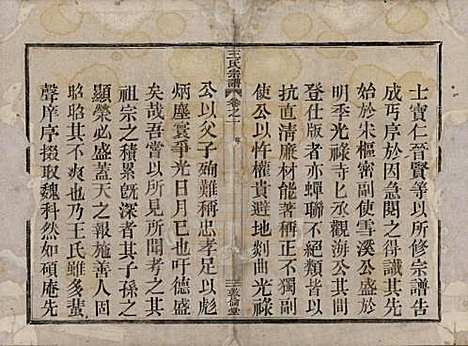 士寶仁晉賢等以所修宗譜告
成丐序於因急閱之得識其先
始於宋樞密副使雪溪公盛於
明季光祿寺卜丞觀海公其間
登仕版者亦蟬聯不絕而皆以
清廉材能著稱正不獨光祿
使公以忤權貴避地剡曲光祿
王氏宗譜
卷之一
三槐堂
公以父子殉難稱忠孝足以彪
炳塵寰爭光日月已也吁德盛
矣哉吾嘗以所見所聞考之其
祖宗之積累旣深者其子孫之
顯榮必盛蓋天之報施善人固
昭昭其不爽也王氏雖多蜚
聲庠序掇取魏科然如碩庵先